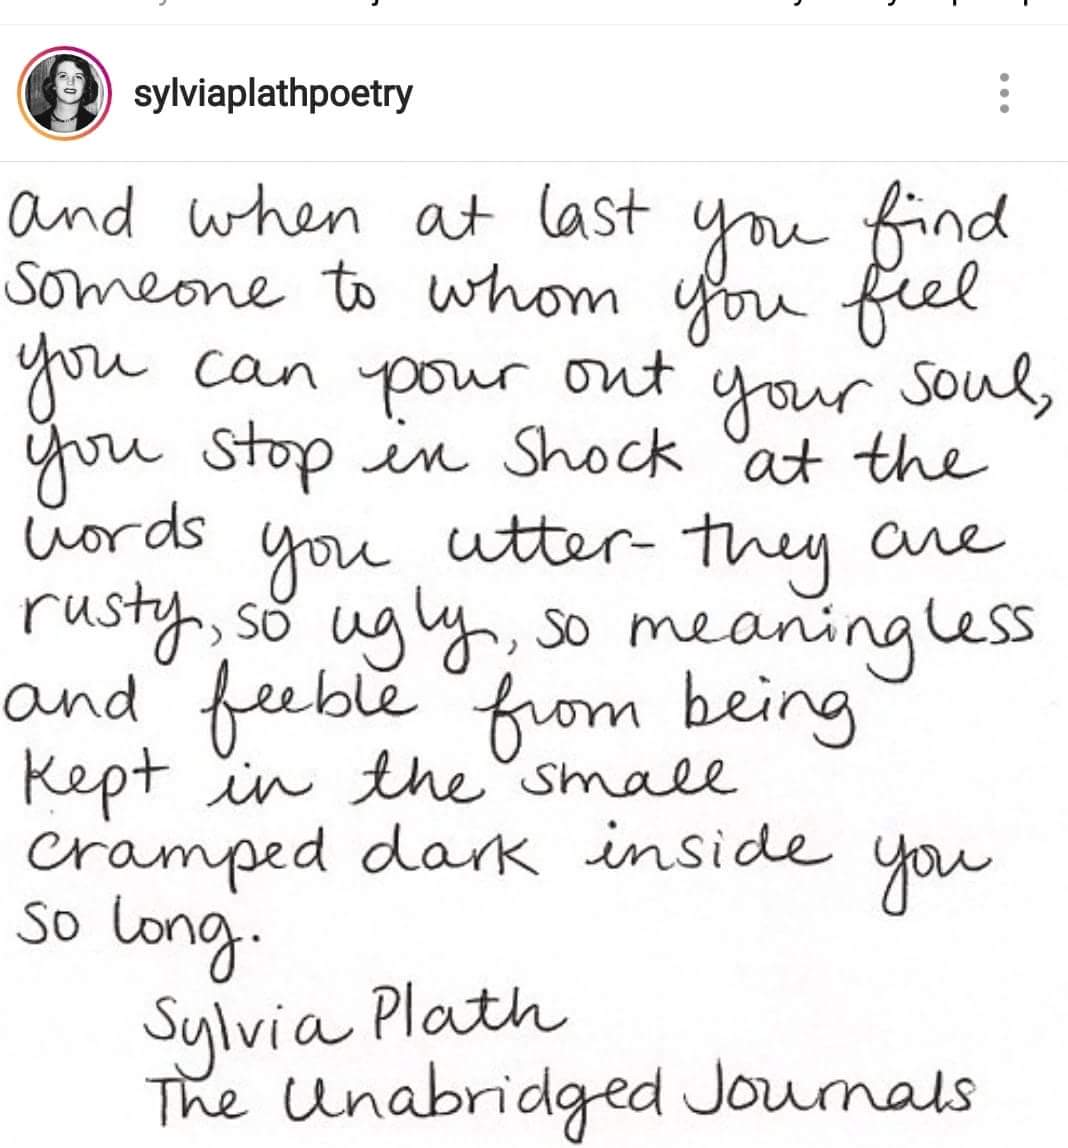 sylviaplathpoetry
and when at last you find
someone to whom you feel
you can pour out your soul,
you stop in shock at the
words you utter- they are
rusty, so ugly, so meaningless
and feeble from being
kept in the small
cramped dark inside you
so long.
Sylvia Plath
The Unabridged Journals